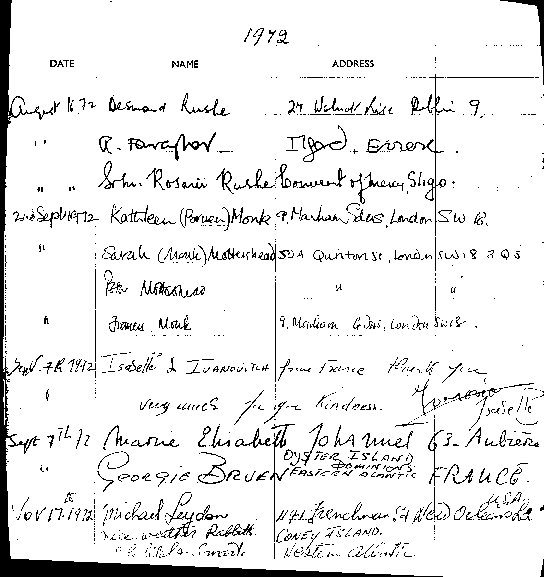 1972
DATE NAME ADDRESS
August 16 72 Desmond Rushe 24 Walnut Rise Dublin 9.
" R.
" " Rosari Rushe Convent of mercy, Sligo.
2nd Sept 1972 Kathleen Monk 9, Markham London SW 18.
" Sarah (Monk) Mottershead 50A Quinton St, London SW18 3QS
Peter Mottershead " "
" Monk 9, London SW18.
Sept. 7th 1972 Isabelle & Ivanovitch from France thank you
" very much for your kindness. Isabelle
Sept 7th 72 Marie Elisabeth Johannet 63- Aubière
" Georgie Bruen Oyster Island Dominions Eastern Atlantic FRANCE.
Nov 17th 1972 Michael Leydon 1141 Frenchman St New Orleans La USA
weather Rabbitt. Coney Island.
Western Atlantic